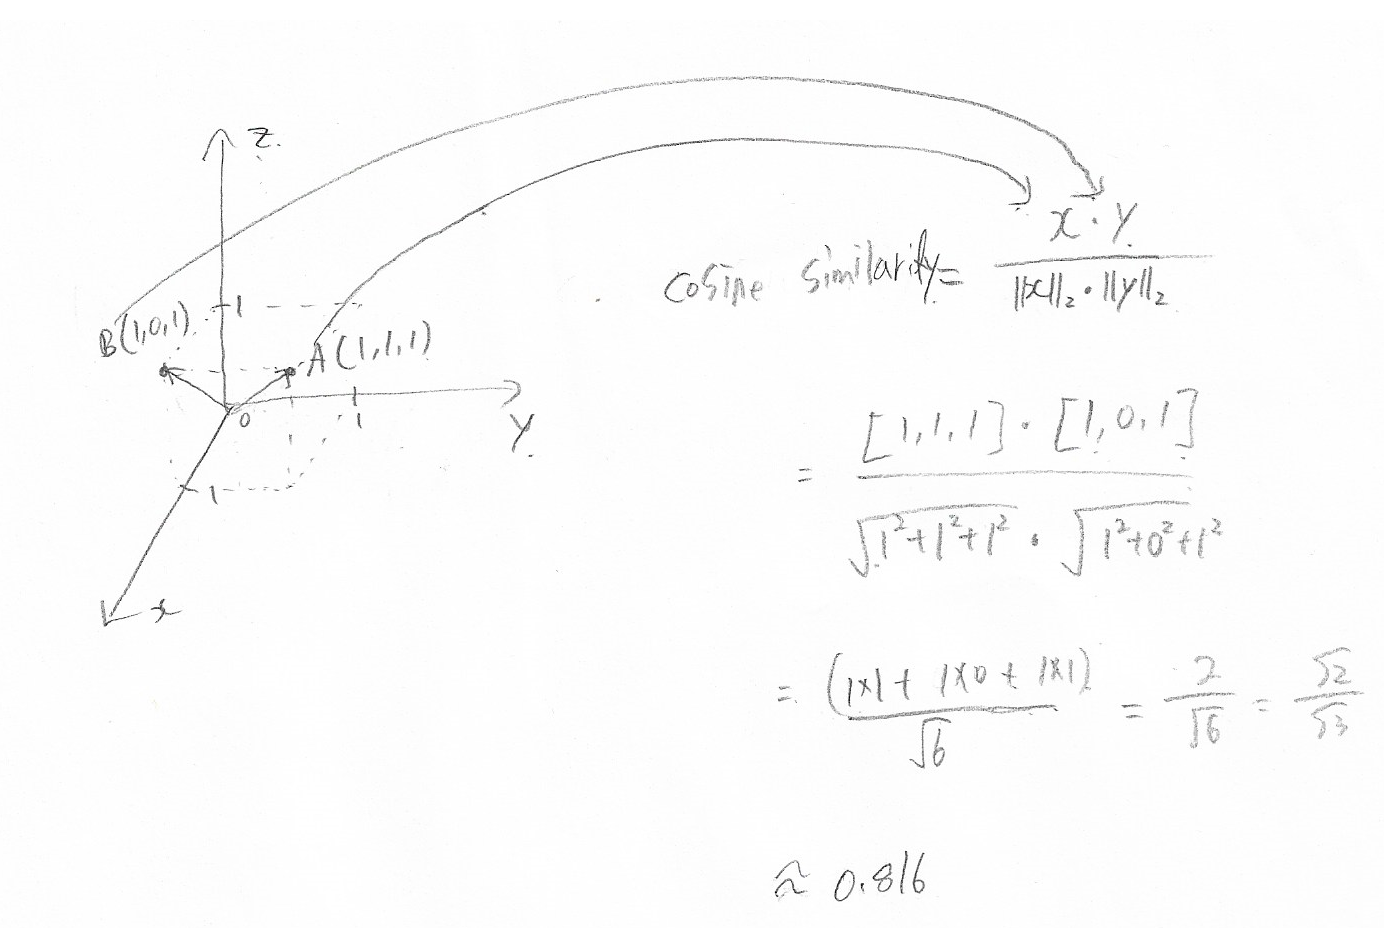 z.
B(1,0,1)
1
A(1,1,1)
0
1
y.
1
x
cosine similarity = x · y / ||x||₂ · ||y||₂
= [1,1,1] · [1,0,1] / √1²+1²+1² · √1²+0²+1²
= (1×1 + 1×0 + 1×1) / √6 = 2 / √6 = √2 / √3
≈ 0.816